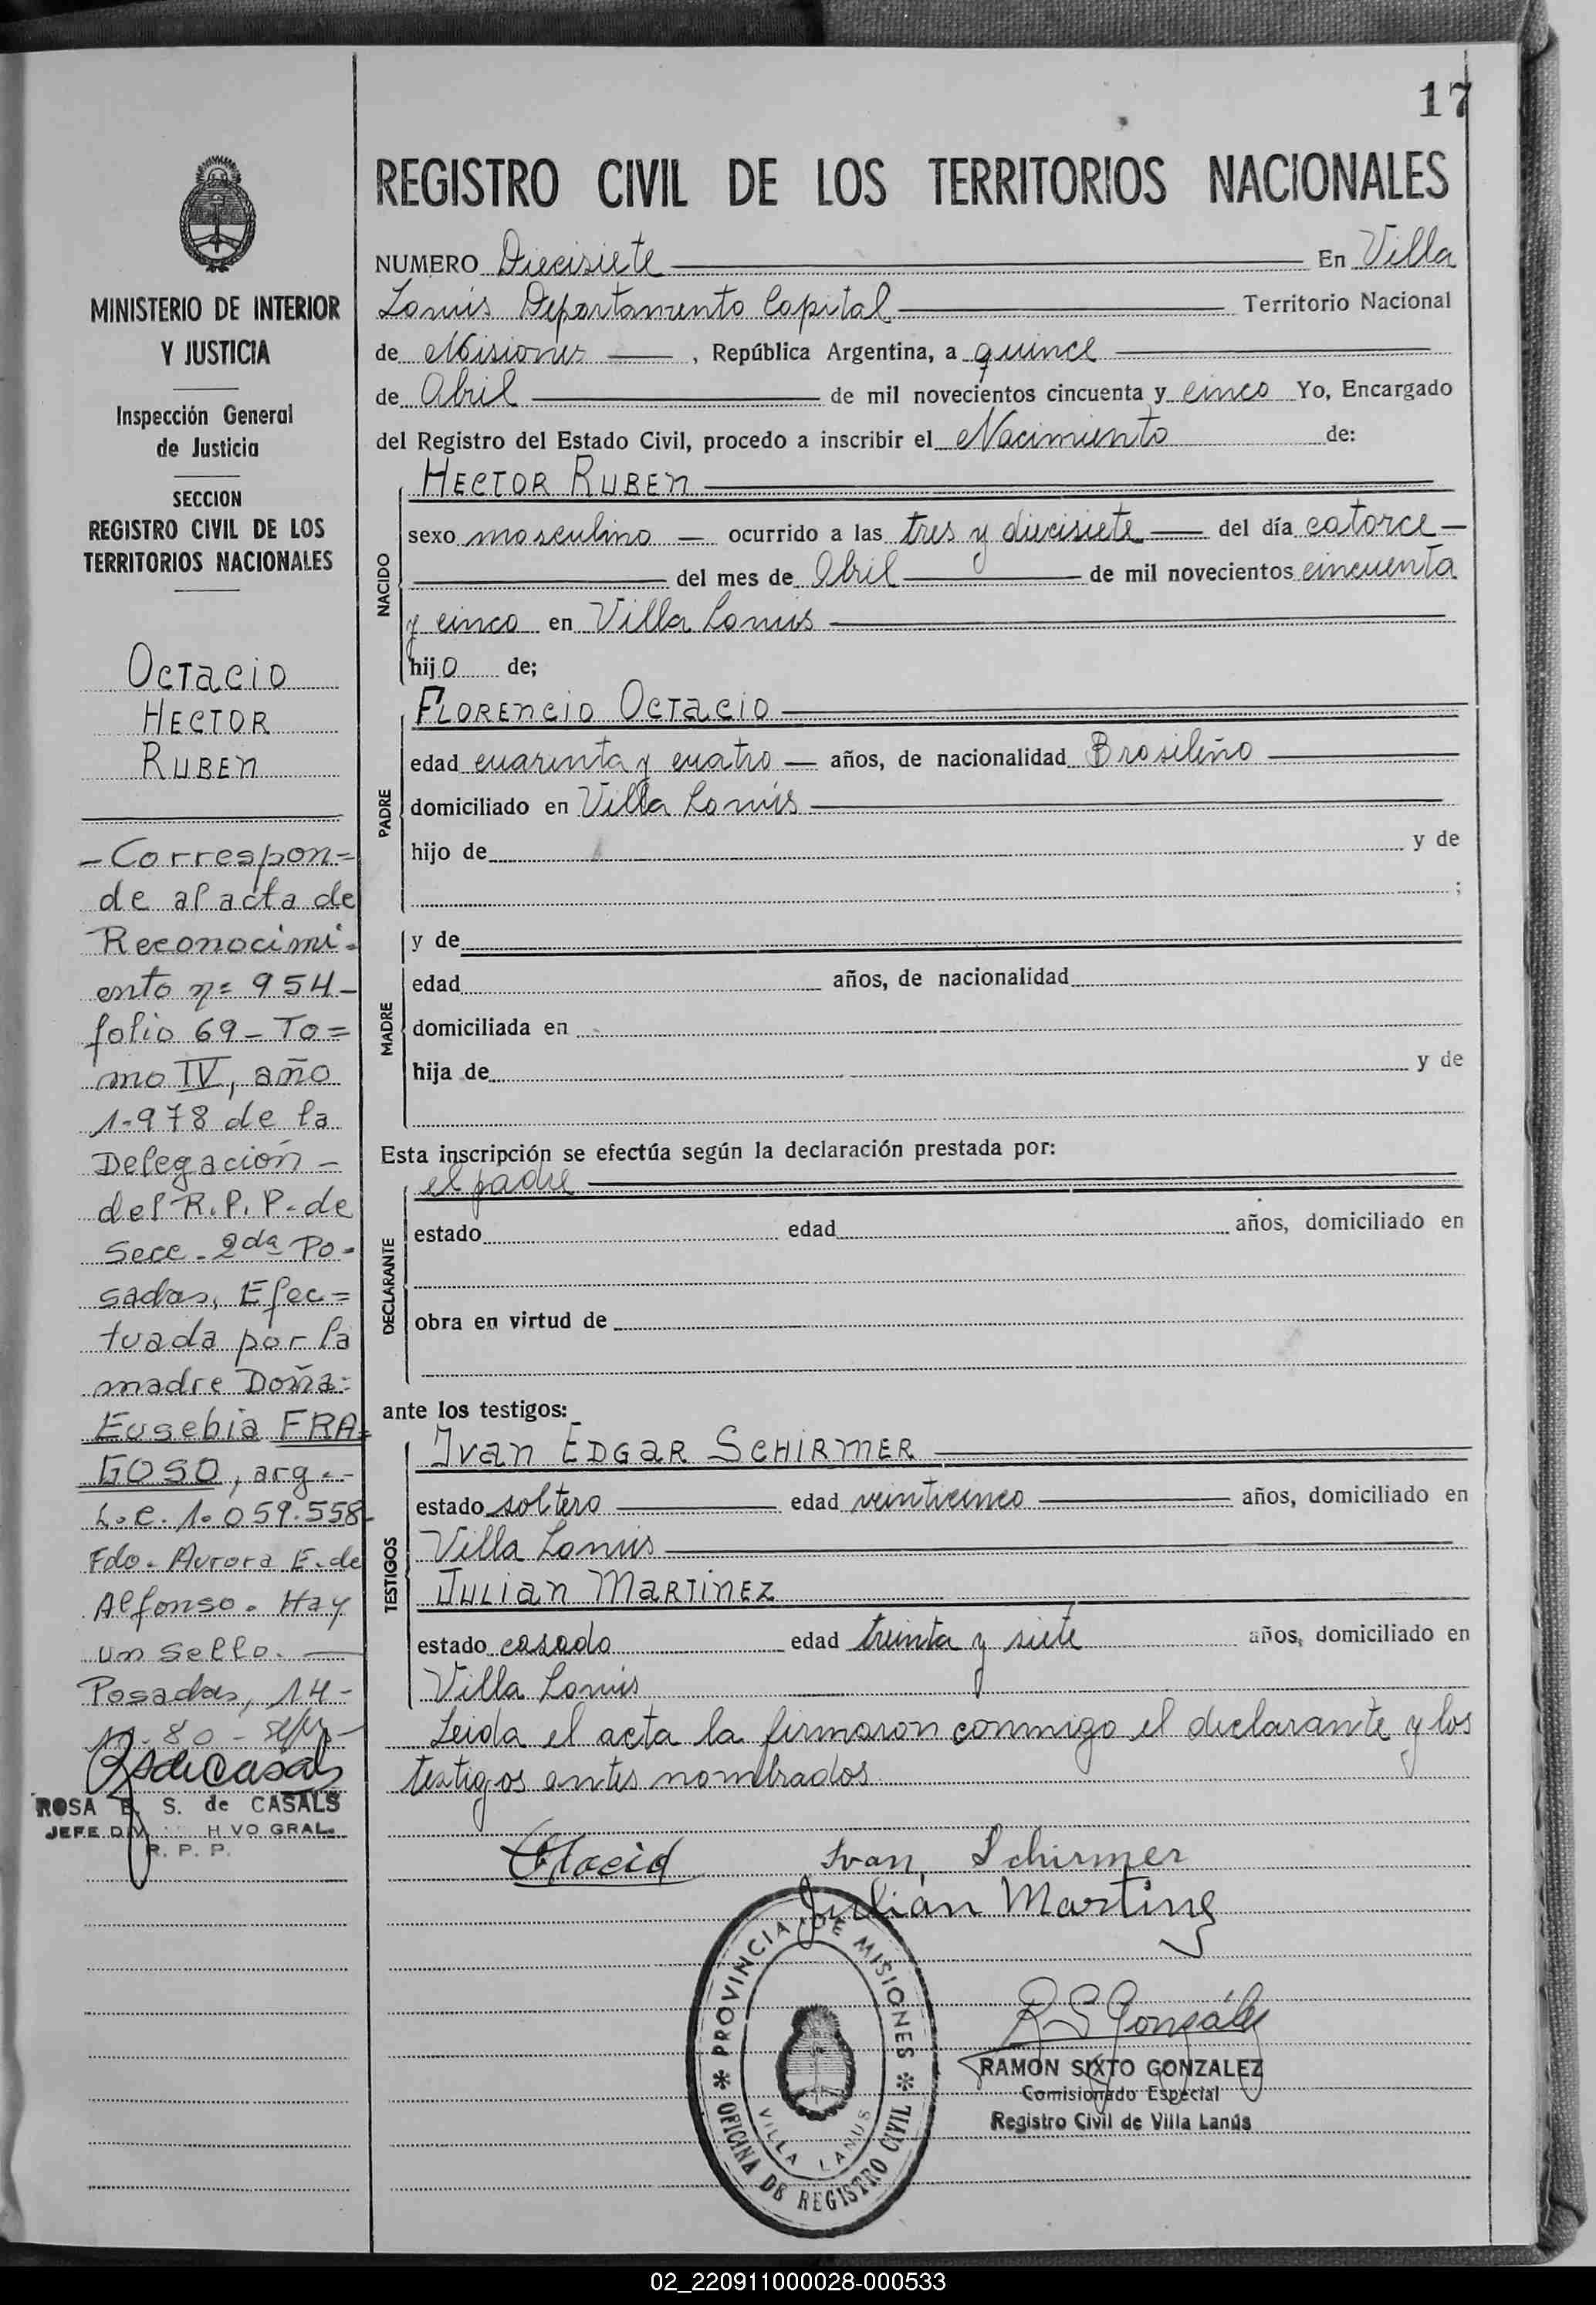 17
MINISTERIO DE INTERIOR
Y JUSTICIA
Inspección General
de Justicia
SECCION
REGISTRO CIVIL DE LOS
TERRITORIOS NACIONALES
Octacio
Hector
Ruben
- Correspon=
de al acta de
Reconocimi-
ento n= 954-
folio 69 - To=
mo IV, año
1.978 de la
Delegación -
del R.P.P. de
Secc. 2da Po-
sadas, Efec=
tuada por la
madre Doña:
Eusebia FRA=
GOSO, arg. -
L.C. 1.059.558-
Fdo. Aurora E. de
Alfonso. Hay
un sello. —
Posadas, 14-
80 -
ROSA E. S. de CASALS
JEFE DIV. H VO GRAL.
R. P. P.
REGISTRO CIVIL DE LOS TERRITORIOS NACIONALES
NUMERO Diecisiete En Villa
Lanús Departamento Capital Territorio Nacional
de Misiones , República Argentina, a quince
de Abril de mil novecientos cincuenta y cinco Yo, Encargado
del Registro del Estado Civil, procedo a inscribir el Nacimiento de:
NACIDO
HECTOR RUBEN
sexo masculino ocurrido a las tres y diecisiete del día catorce
del mes de Abril de mil novecientos cincuenta
y cinco en Villa Lanus
hijo de;
PADRE
FLORENCIO OCTACIO
edad cuarenta y cuatro años, de nacionalidad Brasileño
domiciliado en Villa Lanús
hijo de y de
;
MADRE
y de
edad años, de nacionalidad
domiciliada en
hija de y de
Esta inscripción se efectúa según la declaración prestada por:
DECLARANTE
el padre
estado edad años, domiciliado en
obra en virtud de
ante los testigos:
TESTIGOS
IVAN EDGAR SCHIRMER
estado soltero edad veinticinco años, domiciliado en
Villa Lanus
JULIAN MARTINEZ
estado casado edad treinta y siete años, domiciliado en
Villa Lanus
Leida el acta la firmaron conmigo el declarante y los
testigos antes nombrados
Octacio Ivan Schirmer
Julián Martinez
PROVINCIA DE MISIONES
OFICINA DE REGISTRO CIVIL
VILLA LANUS
R S González
RAMON SIXTO GONZALEZ
Comisionado Especial
Registro Civil de Villa Lanús
02_220911000028-000533